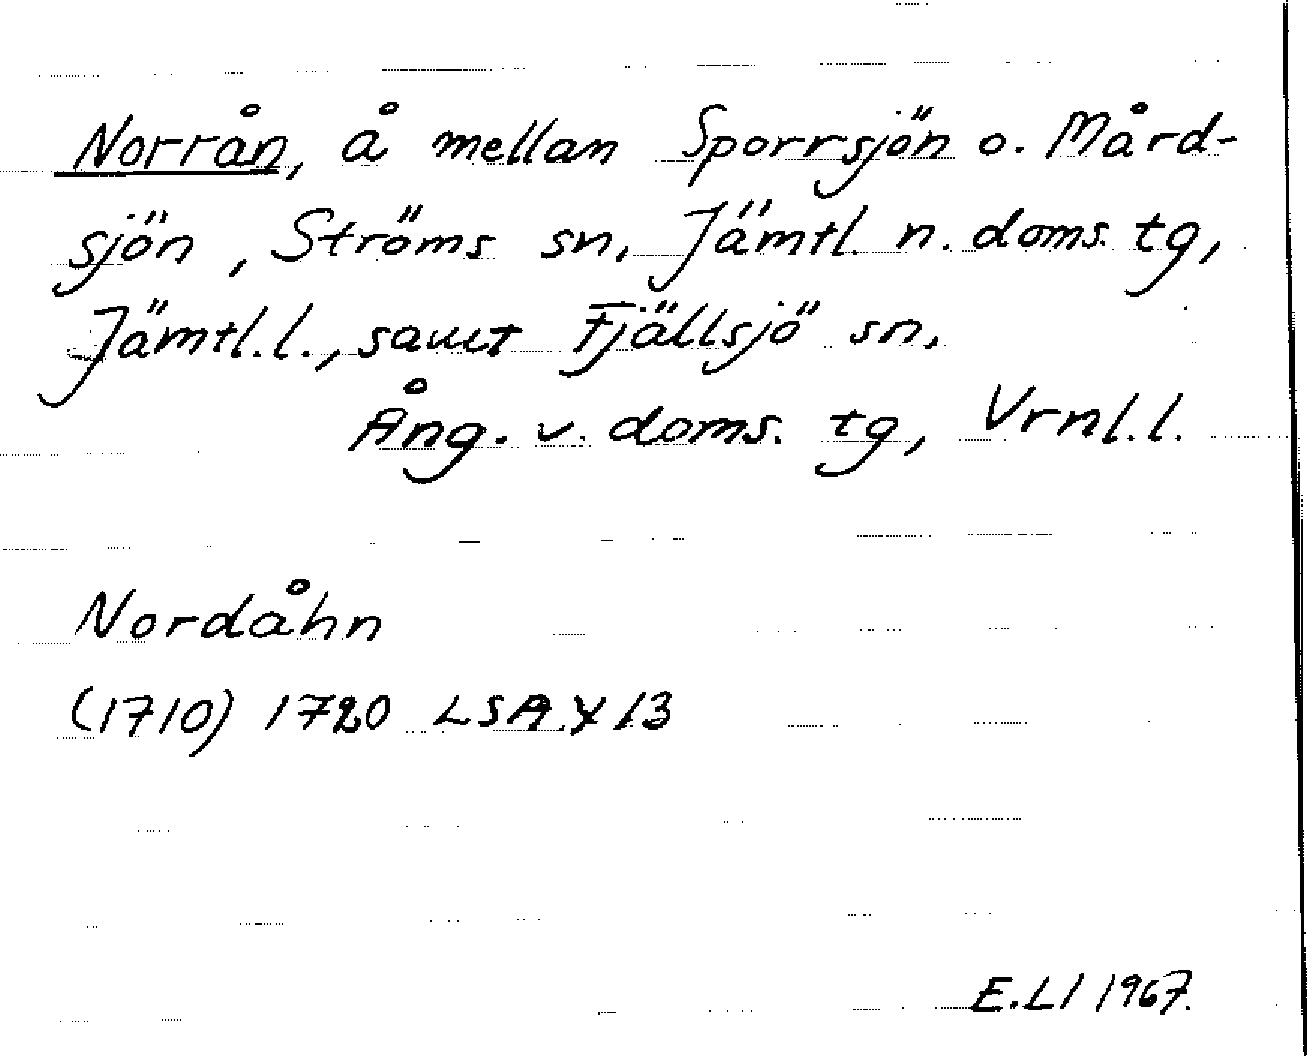 Norrån, å mellan Sporrsjön o. Mård-
sjön, Ströms sn, Jämtl. n. doms. tg,
Jämtl.l., samt Fjällsjö sn,
Ång. v. doms. tg, Vrnl.l.
Nordåhn
(1710) 1720 LSA Y 13
E.Ll 1967.